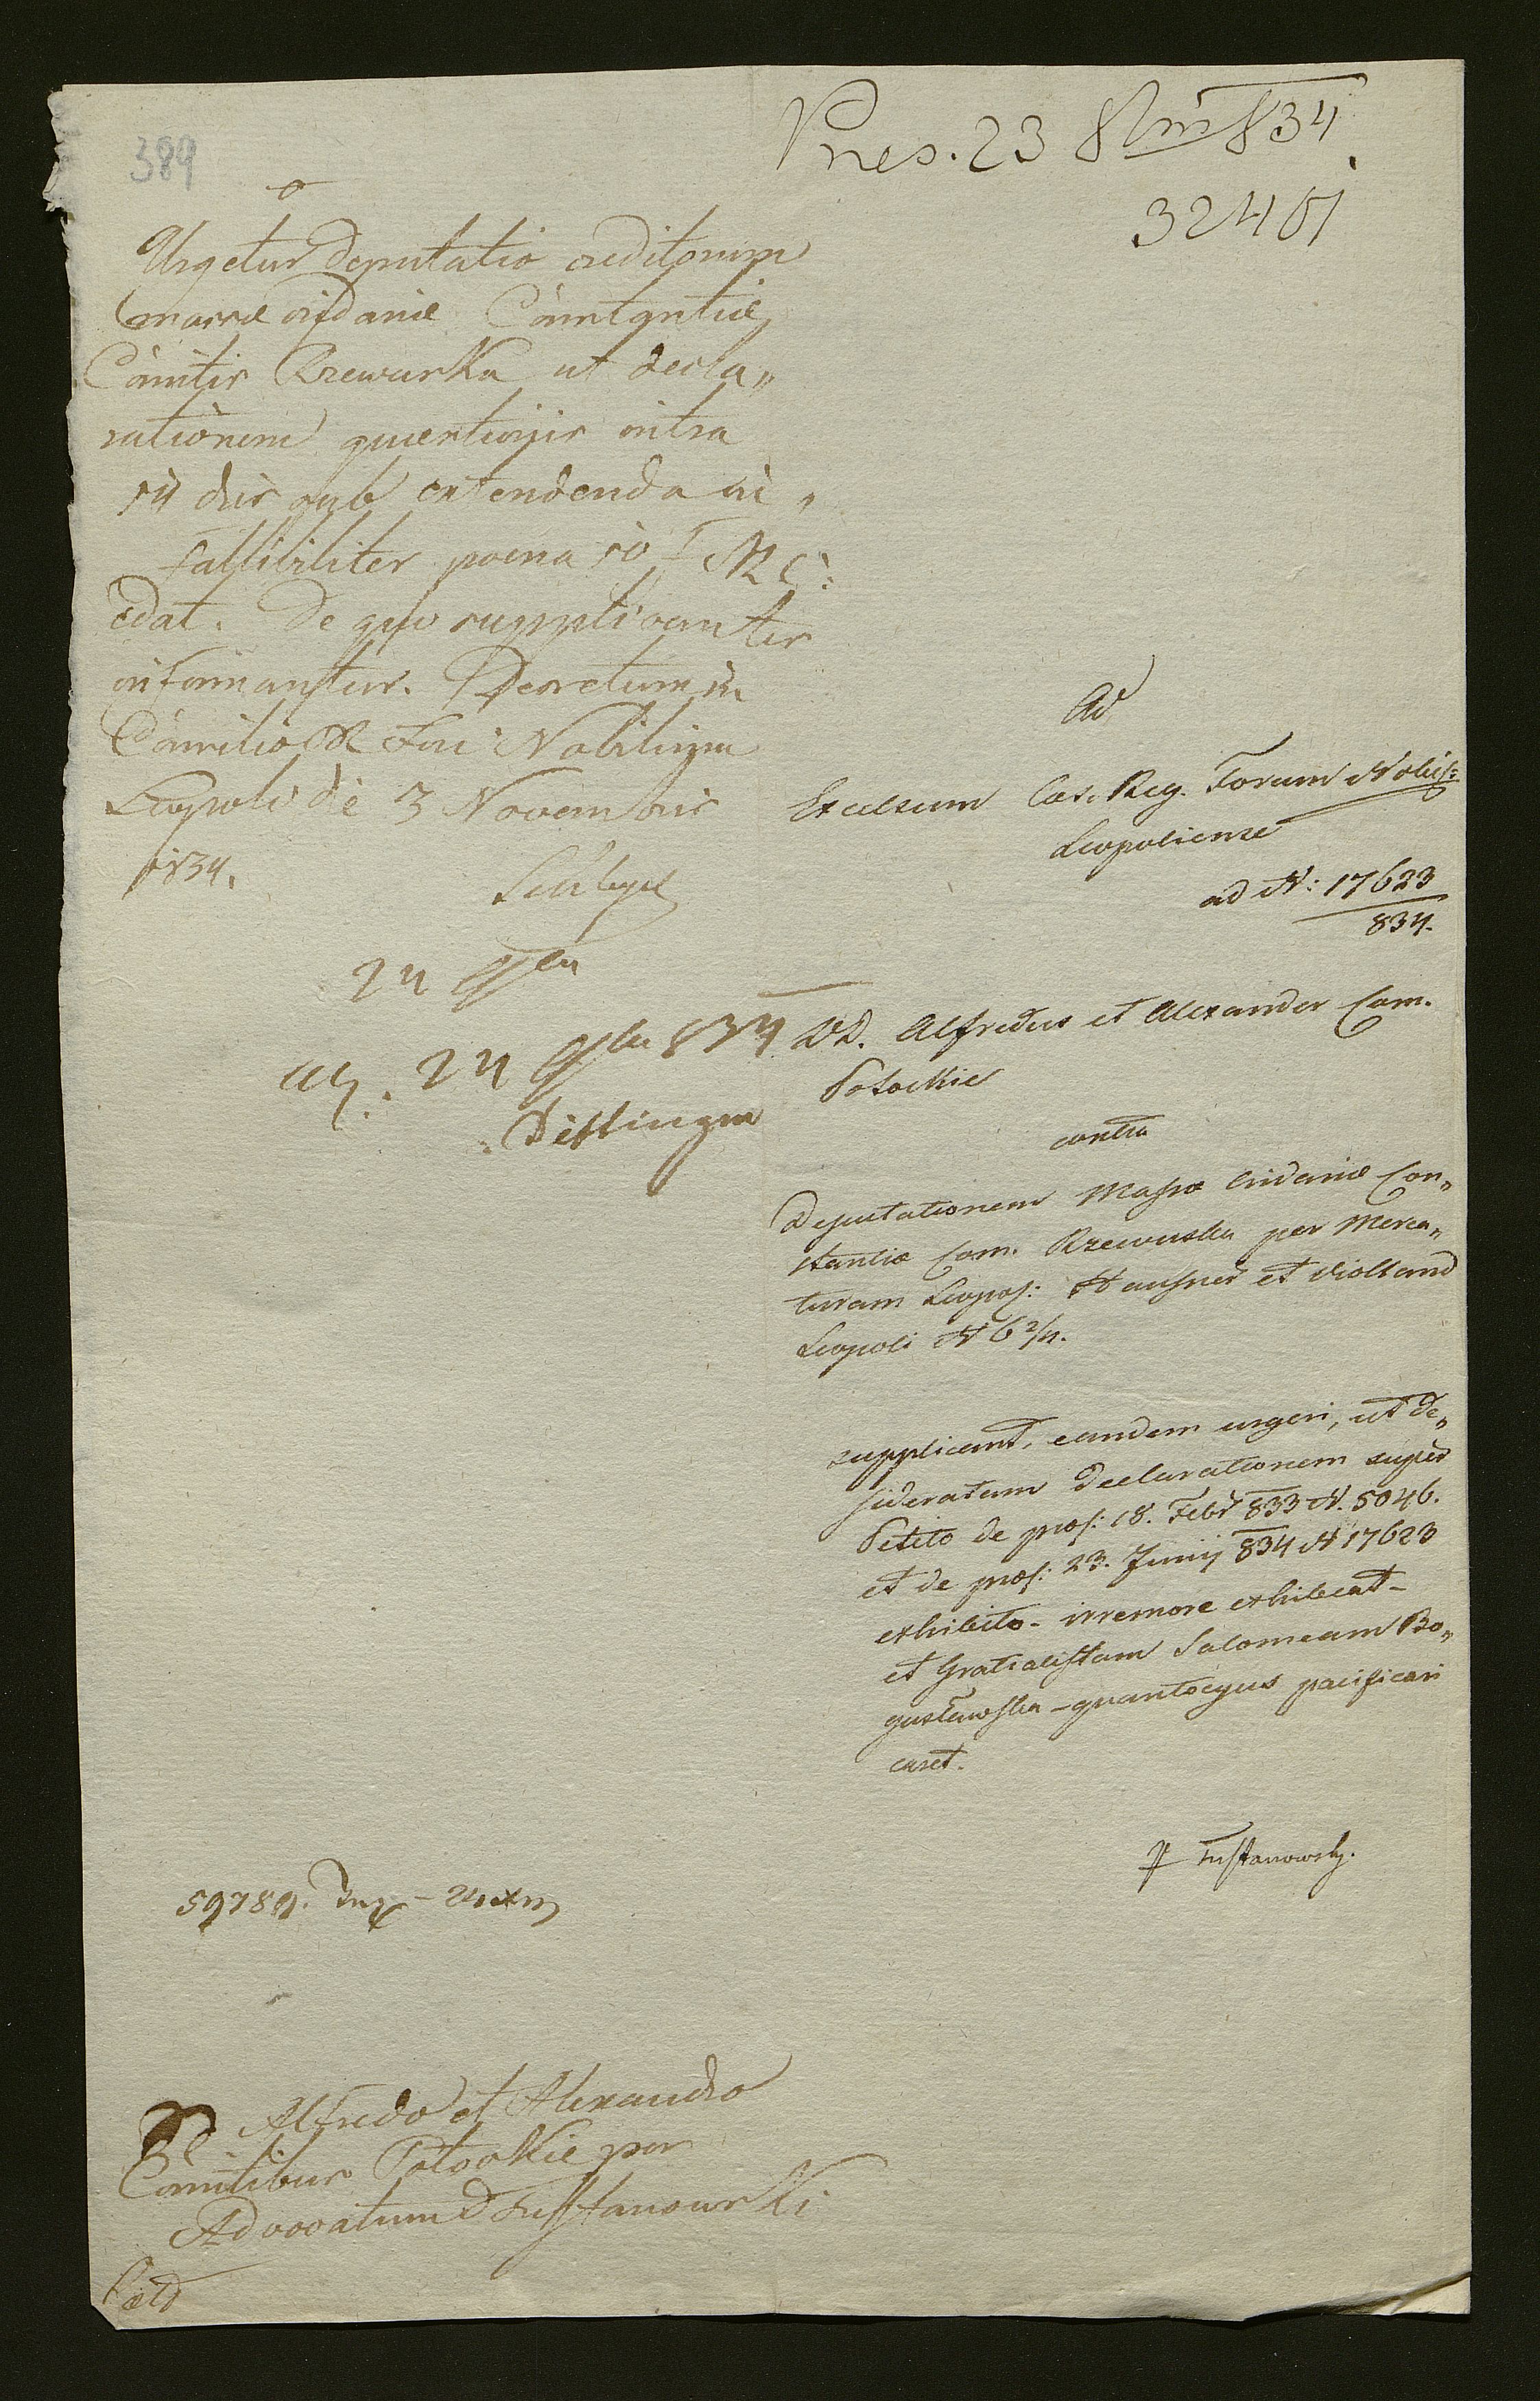 389
Præs. 23 8bris 834
32401
Urgetur Deputatio creditorum
massæ cridariæ Constantiæ
Comitis Rzewuska ut decla„
rationem quæstionis intra
14 dies sub extendenda in„
fallibiliter poena 10 f MC:
edat. De quo supplicantes
informantur. Decretum in
Consilio CR Fori Nobilium
Leopoli die 3 Novembris
1834.
24
24 834
Ad
Excelsum Cæs. Reg. Forum Nobil:
Leopoliense
ad N: 17623
834.
DD. Alfredus et Alexander Com.
Potockie
contra
Deputationem Massæ Cridariæ Con„
stantiæ Com. Rzewuska per Merca„
turam Leopol: Hausner et Violland
Leopoli N 6 2/4.
supplicant, eandem urgeri, ut de„
sideratam declarationem super
Petito de præs: 18. Febr 833 N. 5046.
et de præs: 23. Junij 834 N 17623
exhibito - irremore exhibeat -
et Gratialistam Salomeam Bo„
gustawska - quantocyus pacificari
curet.
Tustanowsky.
59789.
Alfredo et Alexandro
Comitibus Potockie per
Advocatum D Tustanowski